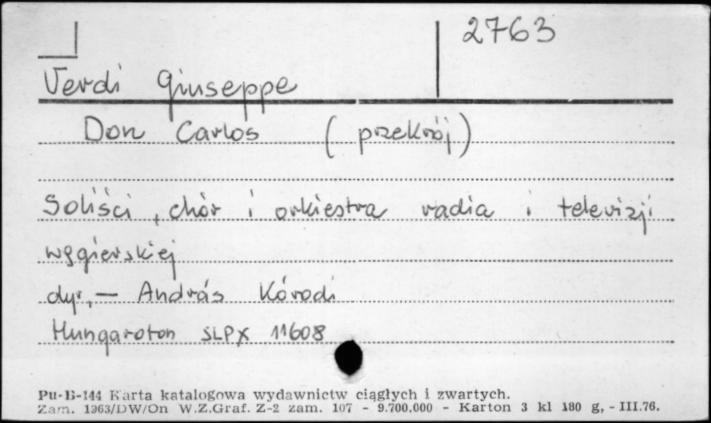 2763
Verdi Giuseppe
Don Carlos (przekrój)
Soliści, chór i orkiestra radia i telewizji
węgierskiej
dyr. – András Kórodi
Hungaroton SLPX 11608
Pu-B-144 Karta katalogowa wydawnictw ciągłych i zwartych.
Zam. 1363/DW/On W.Z.Graf. Z-2 zam. 107 - 9.700.000 - Karton 3 kl 180 g, - III.76.